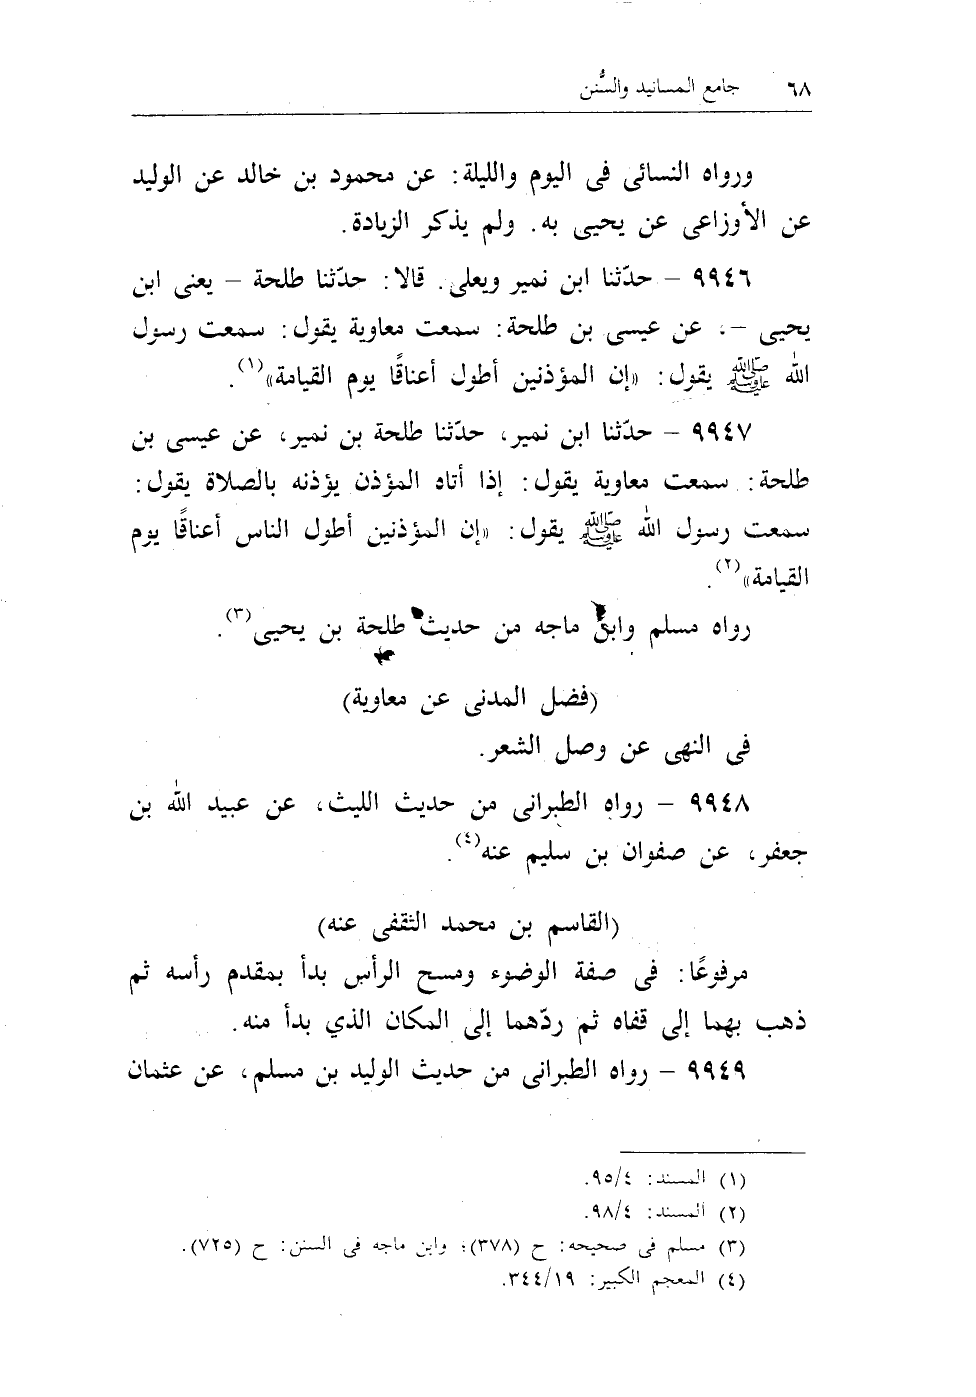 ٦٨ جامع المسانيد والسُّنن
ورواه النسائى فى اليوم والليلة: عن محمود بن خالد عن الوليد
عن الأوزاعى عن يحيى به. ولم يذكر الزيادة.
٩٩٤٦ – حدّثنا ابن نمير ويعلى. قالا: حدّثنا طلحة – يعنى ابن
يحيى –، عن عيسى بن طلحة: سمعت معاوية يقول: سمعت رسول
الله ﷺ يقول: «إن المؤذنين أطول أعناقًا يوم القيامة»(١).
٩٩٤٧ – حدّثنا ابن نمير، حدّثنا طلحة بن نمير، عن عيسى بن
طلحة: سمعت معاوية يقول: إذا أتاه المؤذن يؤذنه بالصلاة يقول:
سمعت رسول الله ﷺ يقول: «إن المؤذنين أطول الناس أعناقًا يوم
القيامة»(٢).
رواه مسلم وابن ماجه من حديث طلحة بن يحيى(٣).
(فضل المدنى عن معاوية)
فى النهى عن وصل الشعر.
٩٩٤٨ – رواه الطبرانى من حديث الليث، عن عبيد الله بن
جعفر، عن صفوان بن سليم عنه(٤).
(القاسم بن محمد الثقفى عنه)
مرفوعًا: فى صفة الوضوء ومسح الرأس بدأ بمقدم رأسه ثم
ذهب بهما إلى قفاه ثم ردّهما إلى المكان الذي بدأ منه.
٩٩٤٩ – رواه الطبرانى من حديث الوليد بن مسلم، عن عثمان
(١) المسند: ٩٥/٤.
(٢) المسند: ٩٨/٤.
(٣) مسلم فى صحيحه: ح (٣٧٨)؛ وابن ماجه فى السنن: ح (٧٢٥).
(٤) المعجم الكبير: ٣٤٤/١٩.